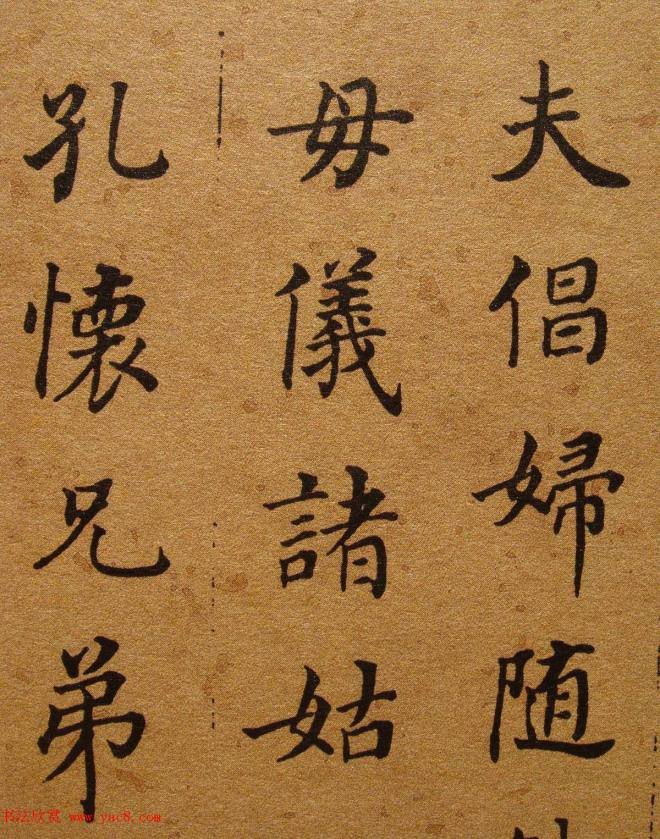 夫倡婦随
毋儀諸姑
孔懷兄弟
书法欣赏 www.yac8.com